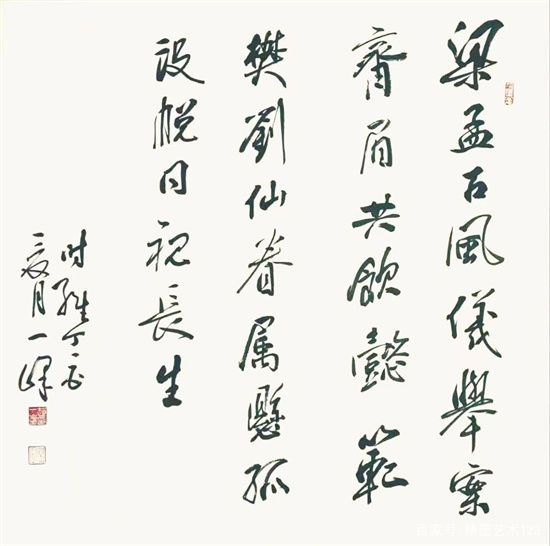 梁孟古風儀舉案
齊眉共飲懿範
樊劉仙眷属懸弧
設帨日祝長生
时維丁酉
夏月一峰
百家号/楠园艺术123